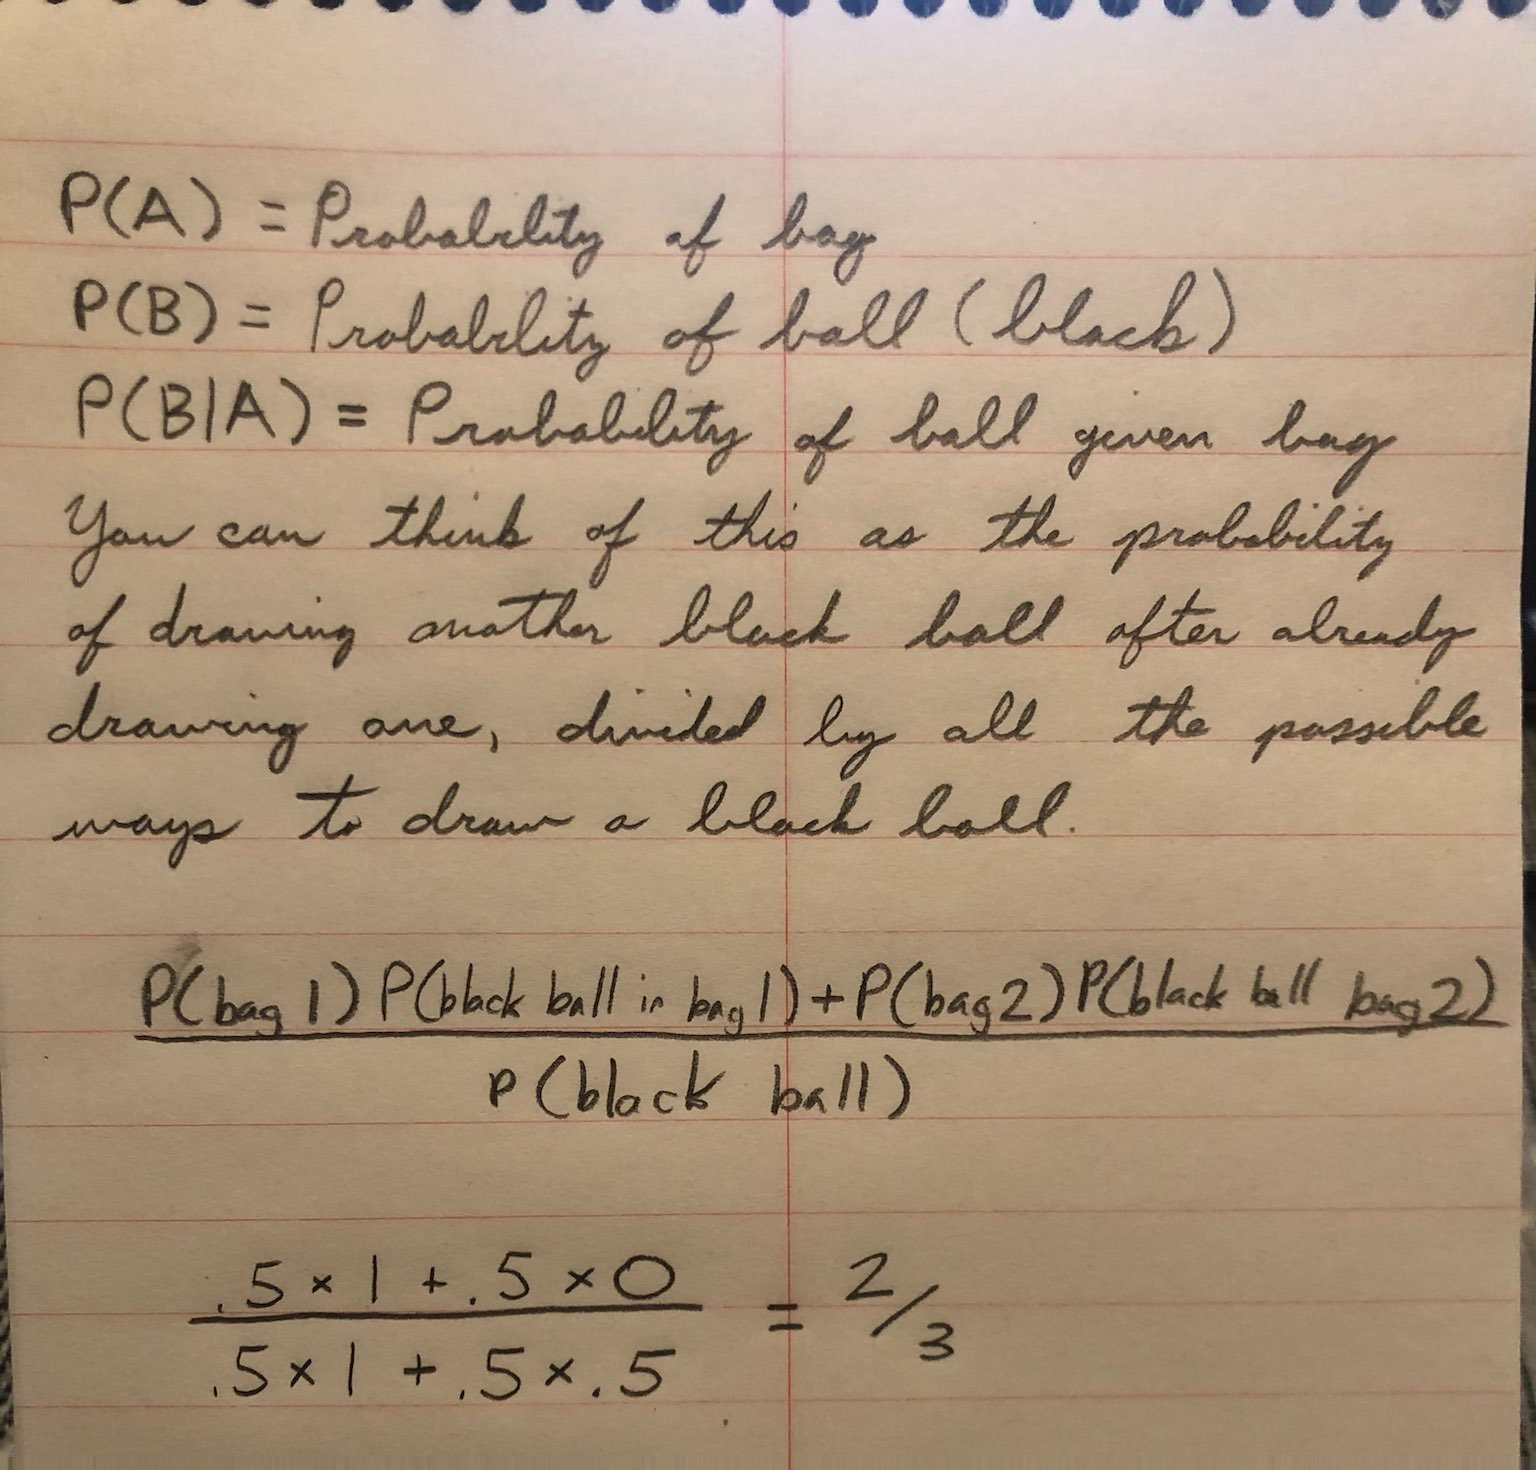 P(A) = Probability of bag
P(B) = Probability of ball (black)
P(B|A) = Probability of ball given bag
You can think of this as the probability
of drawing another black ball after already
drawing one, divided by all the possible
ways to draw a black ball.
P(bag 1) P(black ball in bag 1) + P(bag 2) P(black ball bag 2)
P(black ball)
.5 × 1 + .5 × 0
= 2/3
.5 × 1 + .5 × .5